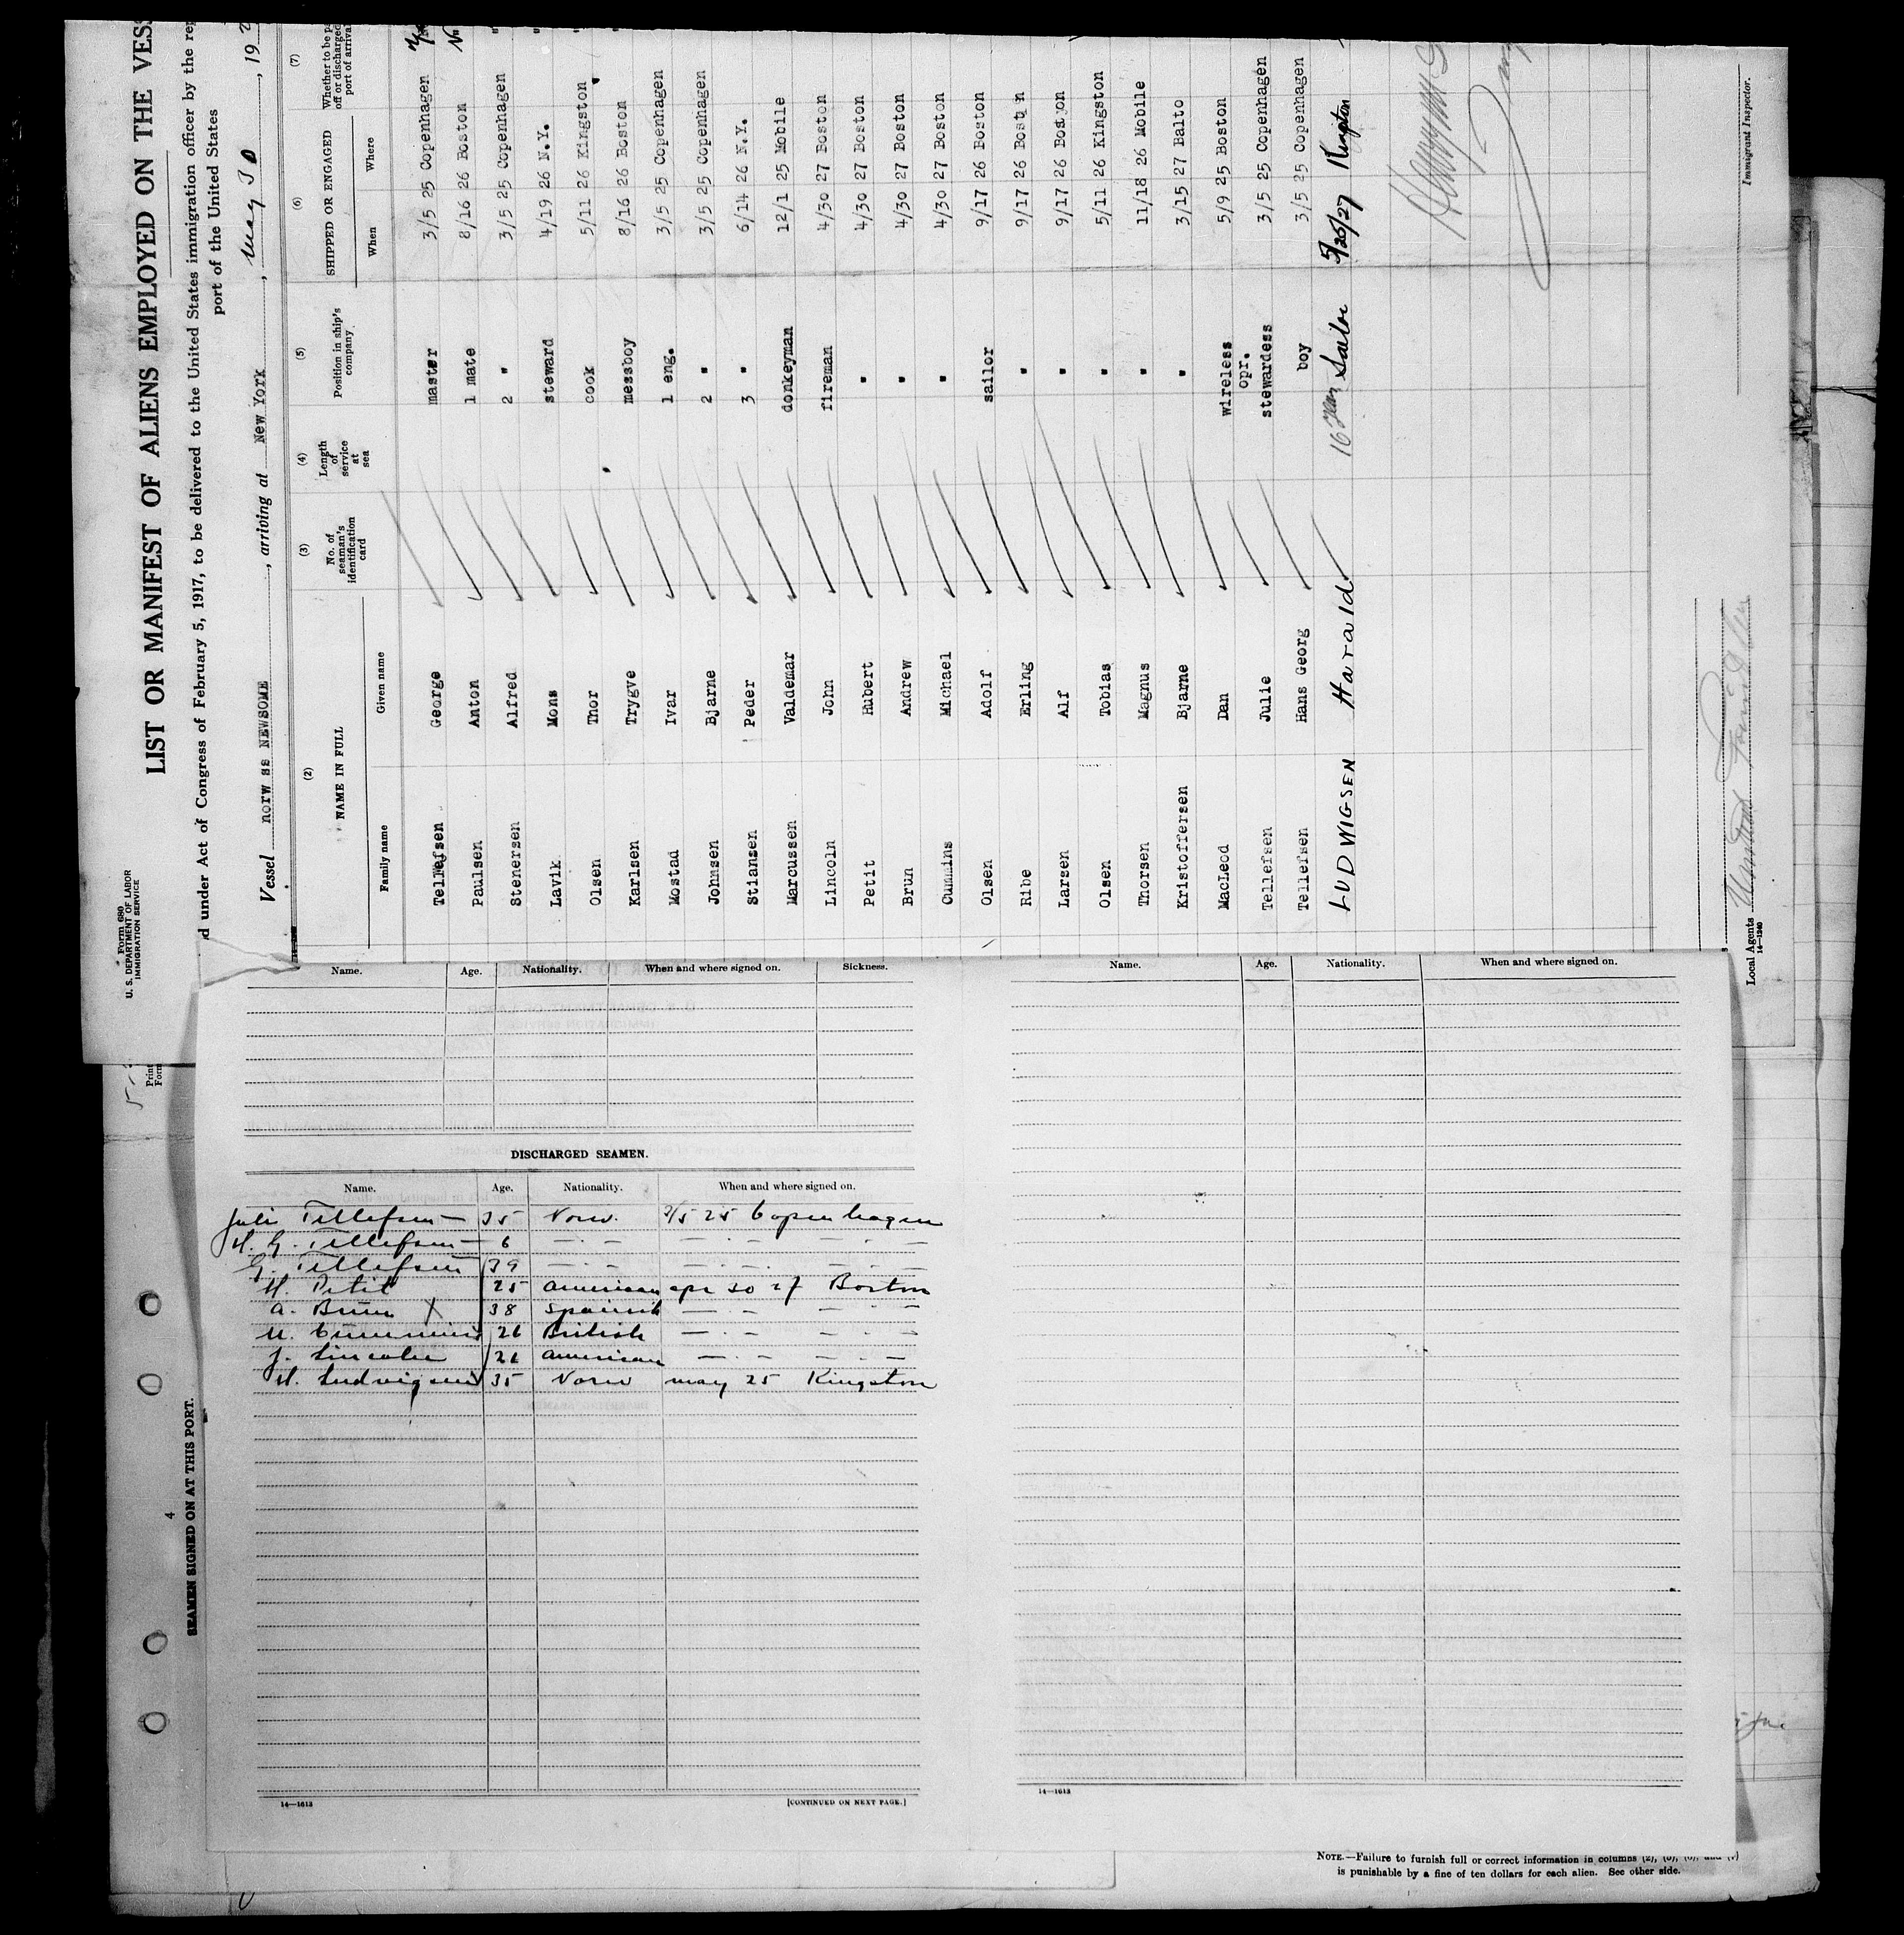 Form 680
U. S. DEPARTMENT OF LABOR
IMMIGRATION SERVICE
LIST OR MANIFEST OF ALIENS EMPLOYED ON THE VESS
d under Act of Congress of February 5, 1917, to be delivered to the United States immigration officer by the rep
port of the United States
Vessel norw ss NEWSOME, arriving at New York, May 30, 192
(2) (3) (4) (5) (6) (7)
NAME IN FULL No. of seaman's identification card Length of service at sea Position in ship's company SHIPPED OR ENGAGED Whether to be pa off or discharged port of arrival
Family name Given name When Where
Tellefsen George master 3/5 25 Copenhagen
Paulsen Anton 1 mate 8/16 26 Boston
Stenersen Alfred 2 " 3/5 25 Copenhagen "
Lavik Mons steward 4/19 26 N.Y. "
Olsen Thor cook 5/11 26 Kingston "
Karlsen Trygve messboy 8/16 26 Boston "
Mostad Ivar 1 eng. 3/5 25 Copenhagen
Johnsen Bjarne 2 " 3/5 25 Copenhagen
Stiansen Peder 3 " 6/14 26 N.Y.
Marcussen Valdemar donkeyman 12/1 25 Mobile
Lincoln John fireman 4/30 27 Boston
Petit Hubert " 4/30 27 Boston
Brun Andrew " 4/30 27 Boston
Cummins Michael " 4/30 27 Boston
Olsen Adolf sailor 9/17 26 Boston
Ribe Erling " 9/17 26 Boston
Larsen Alf " 9/17 26 Boston
Olsen Tobias " 5/11 26 Kingston
Thorsen Magnus " 11/18 26 Mobile
Kristoffersen Bjarne " 3/15 27 Balto
MacLeod Dan wireless opr. 5/9 25 Boston
Tellefsen Julie stewardess 3/5 25 Copenhagen
Tellefsen Hans Georg boy 3/5 25 Copenhagen
LUDWIGSEN Harald 16 year Sailor 5/25/27 Kingston
Immigrant Inspector.
Local Agents United Fruit
14—1240
Name. Age. Nationality. When and where signed on. Sickness.
DISCHARGED SEAMEN.
Name. Age. Nationality. When and where signed on.
Julie Tellefsen 35 Norw. 3/5 25 Copenhagen
H. G. Tellefsen 6 — . — — . — — . —
G. Tellefsen 39 — . — — . — — . —
H. Petit 25 american apr 30 27 Boston
A. Brun X 38 Spanish — . — — . —
M. Cummins 26 British — . — — . —
J. Lincoln 26 american — . — — . —
H. Ludvigsen 35 Norw may 25 Kingston
14—1613
[CONTINUED ON NEXT PAGE.]
Name. Age. Nationality. When and where signed on.
14—1613
4
SEAMEN SIGNED ON AT THIS PORT.
Print
Form
NOTE.—Failure to furnish full or correct information in columns (2), (5), (6), and (7)
is punishable by a fine of ten dollars for each alien. See other side.